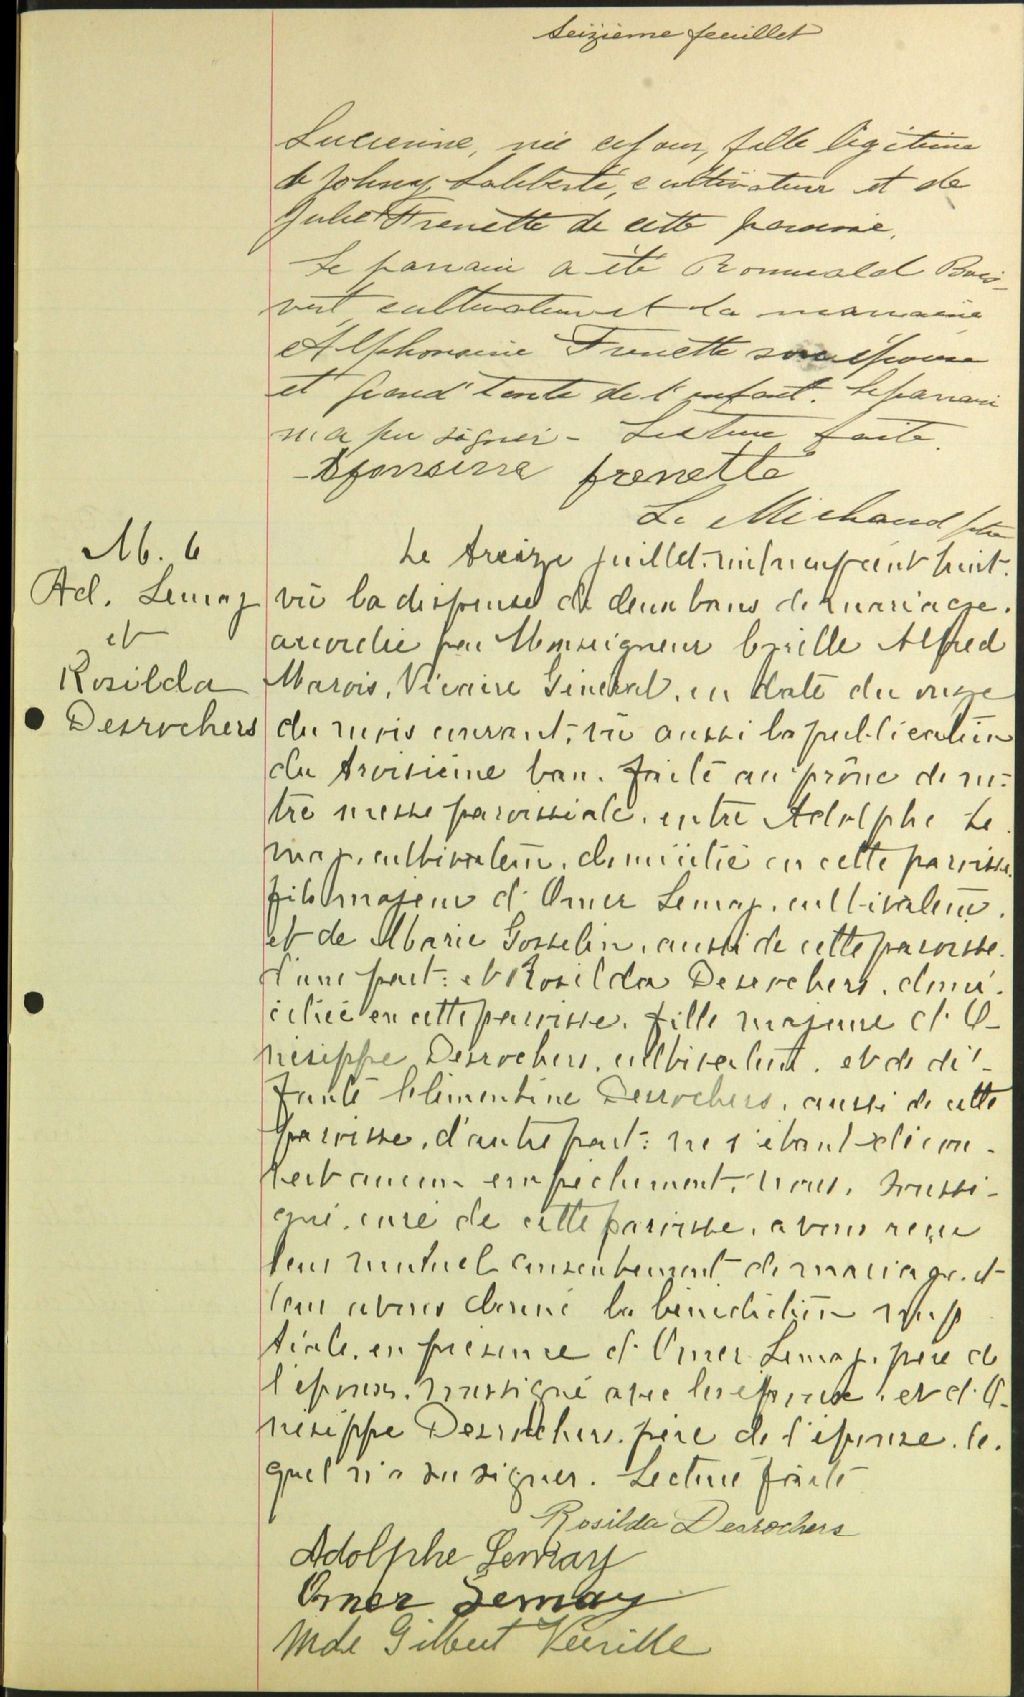 Seizième feuillet
Lucienne, née ce jour, fille légitime
de Johny Laliberté, cultivateur et de
Julie Frenette de cette paroisse.
Le parrain a été Romuald Bois-
vert cultivateur et la marraine
Alphonsine Frenette son épouse
et grand'tante de l'enfant. Le parrain
n'a pu signer - Lecture faite.
frenette
L. Michaud ptre
M. 6
Ad. Lemay
et
Rosilda
Desrochers
Le treize juillet, mil neuf cent huit.
vû la dispense de deux bans de mariage.
accordée par Monseigneur Cyrille Alfred
Marois, Vicaire Général, en date du onze
du mois courant; vû aussi la publication
du troisième ban. faite au prône de no-
tre messe paroissiale, entre Adolphe Le
may, cultivateur, domicilié en cette paroisse.
fils majeur d'Omer Lemay, cultivateur,
et de Marie Gosselin, aussi de cette paroisse.
d'une part: et Rosilda Desrochers, domi-
ciliée en cette paroisse, fille majeure d'O-
nésippe Desrochers, cultivateur, et de dé-
funte Clémentine Desrochers, aussi de cette
paroisse, d'autre part: ne s'étant décou-
vert aucun empêchement, nous, soussi-
gné, curé de cette paroisse, avons reçu
leur mutuel consentement de mariage, et
leur avons donné la bénédiction nup
tiale, en présence d'Omer Lemay, père de
l'époux, soussigné avec les époux, et d'O-
nésippe Desrochers, père de l'épouse, le-
quel n'a su signer. Lecture faite
Rosilda Desrochers
Adolphe Lemay
Omer Lemay
Mde Gilbert